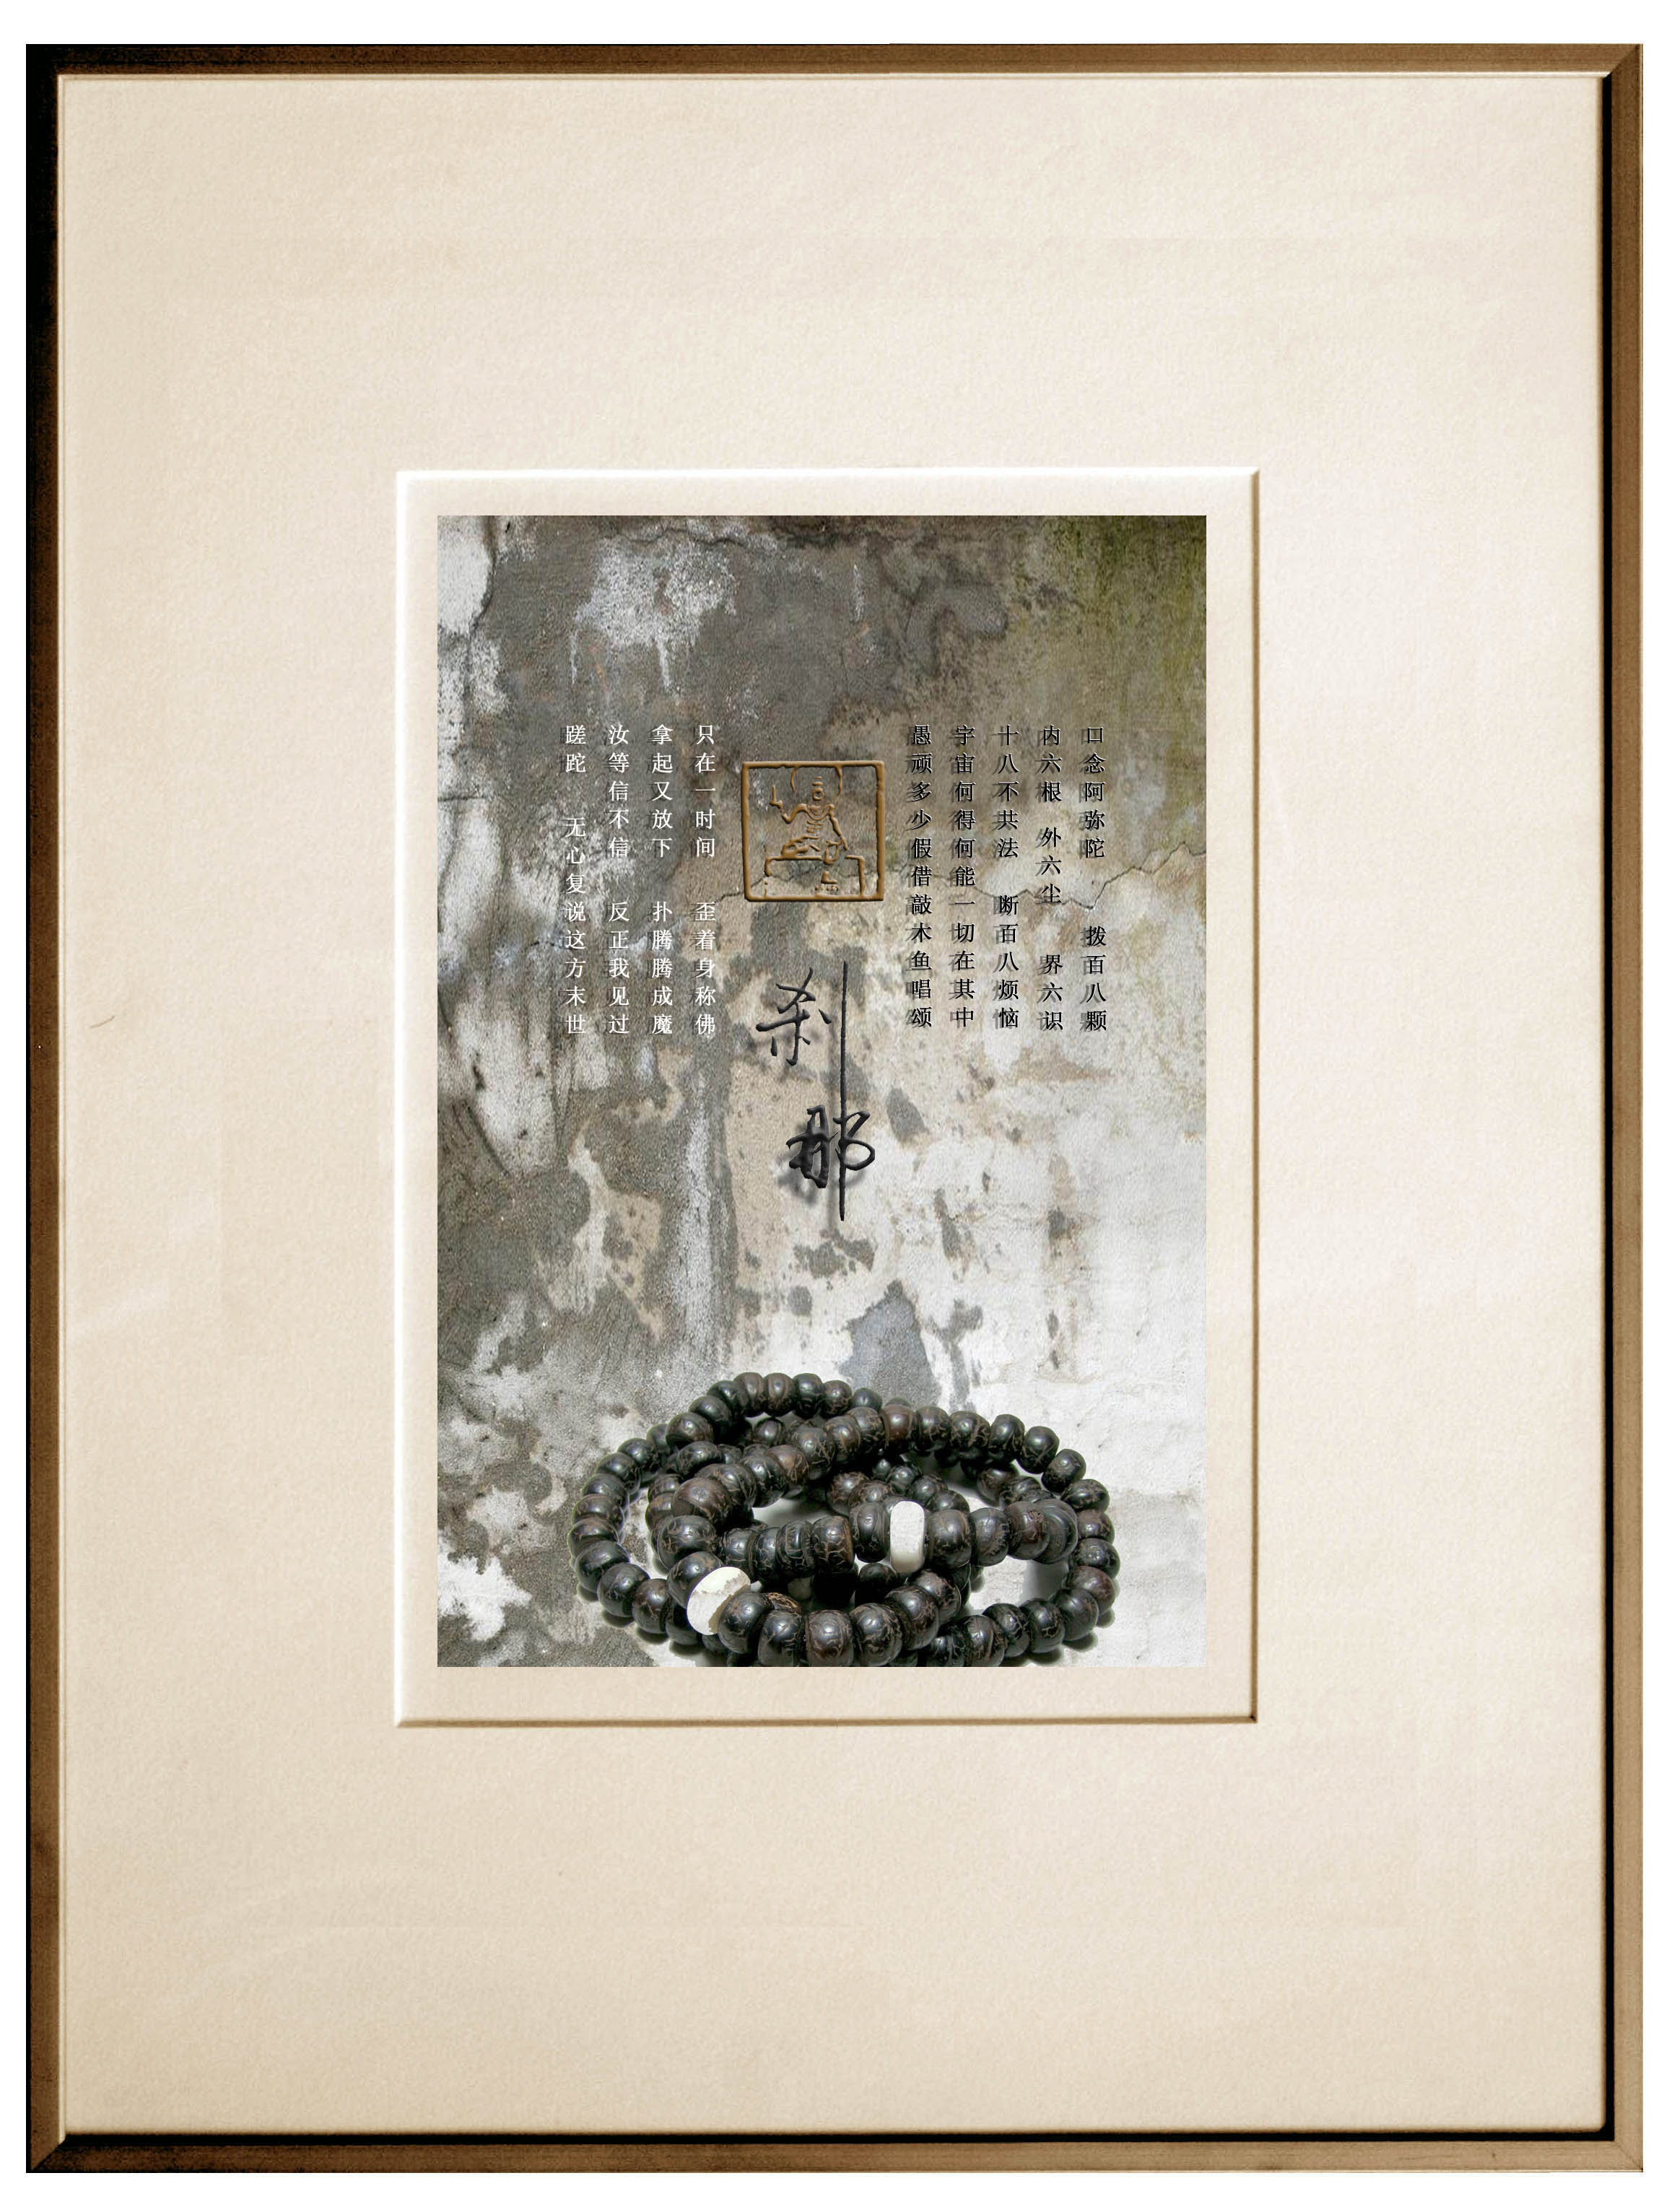 口念阿弥陀 拨百八颗
内六根 外六尘 界六识
十八不共法 断百八烦恼
宇宙何得何能一切在其中
愚顽多少假借敲木鱼唱颂
刹那
只在一时间 歪着身称佛
拿起又放下 扑腾腾成魔
汝等信不信 反正我见过
蹉跎 无心复说这方末世